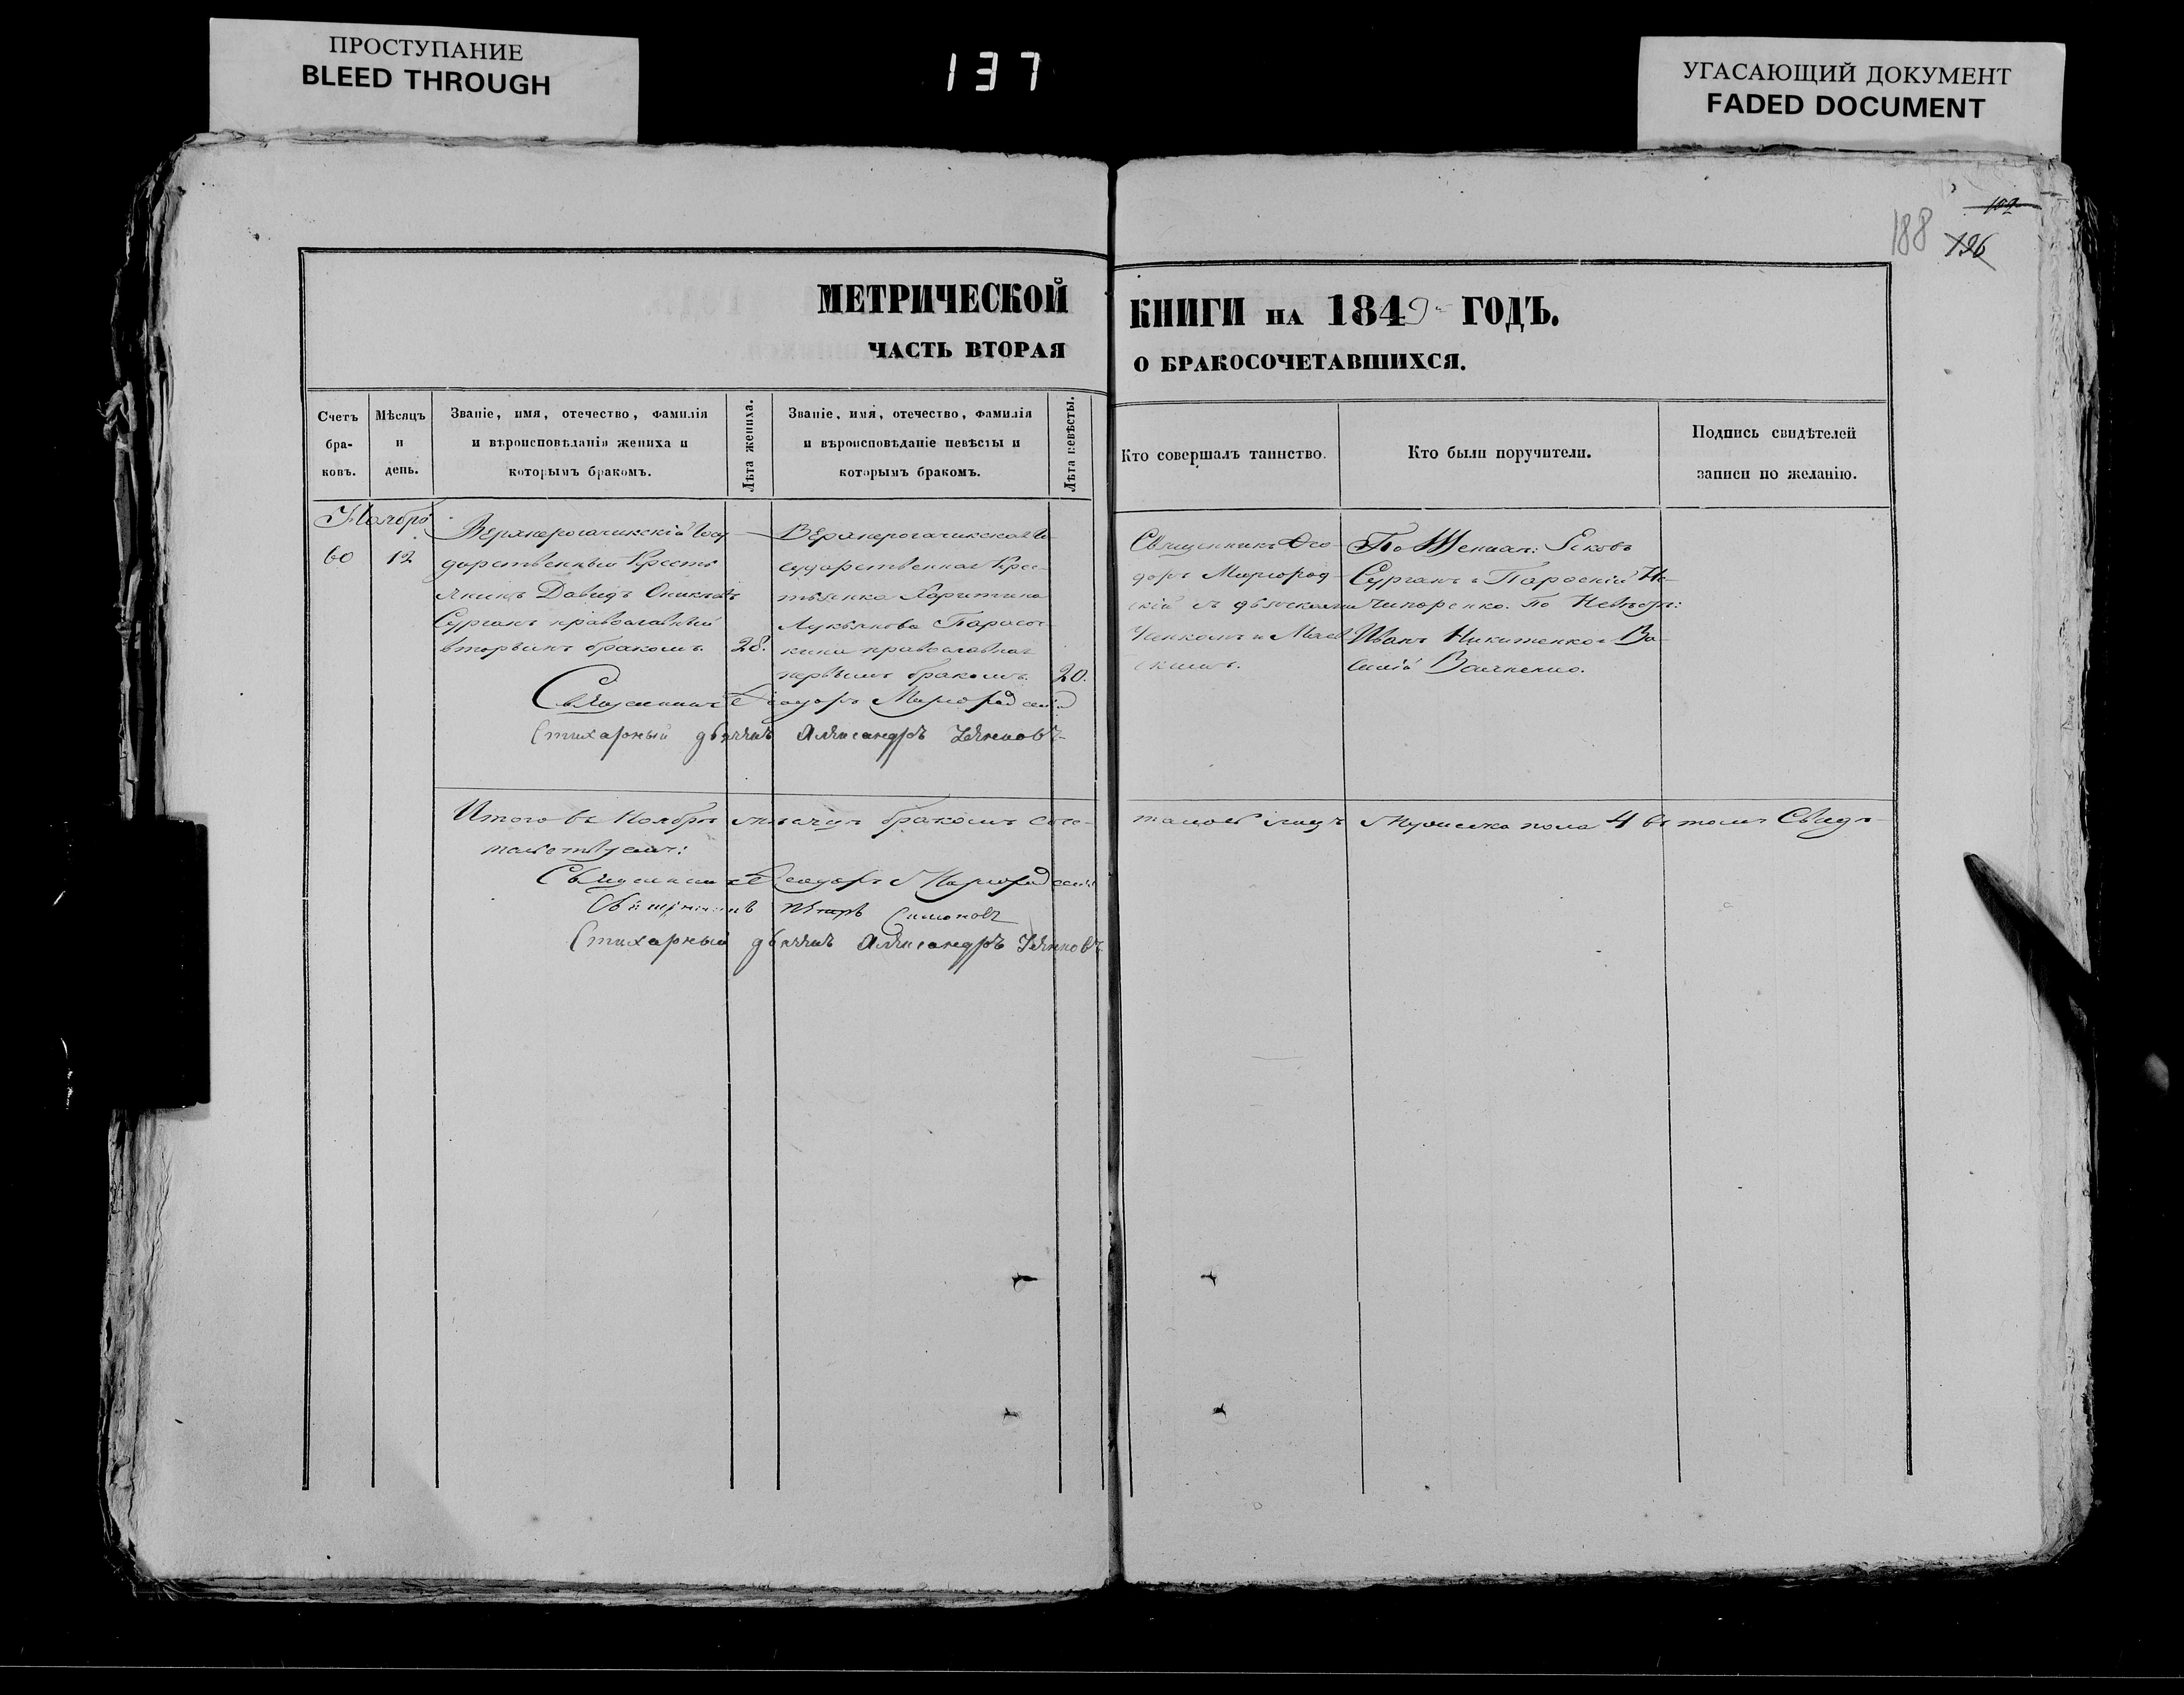 ПРОСТУПАНИЕ
BLEED THROUGH
137
УГАСАЮЩИЙ ДОКУМЕНТ
FADED DOCUMENT
102
188 136
МЕТРИЧЕСКОЙ
ЧАСТЬ ВТОРАЯ
КНИГИ НА 1849 ГОДЪ.
О БРАКОСОЧЕТАВШИХСЯ.
Счетъ
бра-
ковъ.
Мѣсяцъ
и
день.
Званіе, имя, отечество, фамилія
и вѣроисповѣданія жениха и
которымъ бракомъ.
Лѣта жениха.
Званіе, имя, отечество, фамилія
и вѣроисповѣданіе невѣсты и
которымъ бракомъ.
Лѣта невѣсты.
Кто совершалъ таинство.
Кто были поручители.
Подпись свидѣтелей
записи по желанію.
Ноябрь
60
12
Верхнерогачикскій Госу
дарственный Кресть
янинъ Давидъ
Сурганъ православный
вторымъ бракомъ.
28.
Верхнерогачикская Го
сударственная Крес-
тьянка Харитина
Лукьянова
православная
первымъ бракомъ.
20.
Священникъ Ѳео
доръ Миргород
скій съ дьячками
По Женихѣ: Яковъ
Сурганъ и Параскій Не-
чипоренко. По Невѣстѣ:
Иванъ Никитенко и Ва-
силій
Священникъ Ѳеодоръ Миргородскій
Стихарный дьячекъ Александръ
Итого въ Ноябрѣ мѣсяцѣ бракомъ соче-
мужеска пола 4 въ томъ Свидѣ-
тельствуемъ:
Священникъ Ѳеодоръ Миргородскій
Священникъ Петръ Симоновъ
Стихарный дьячекъ Александръ